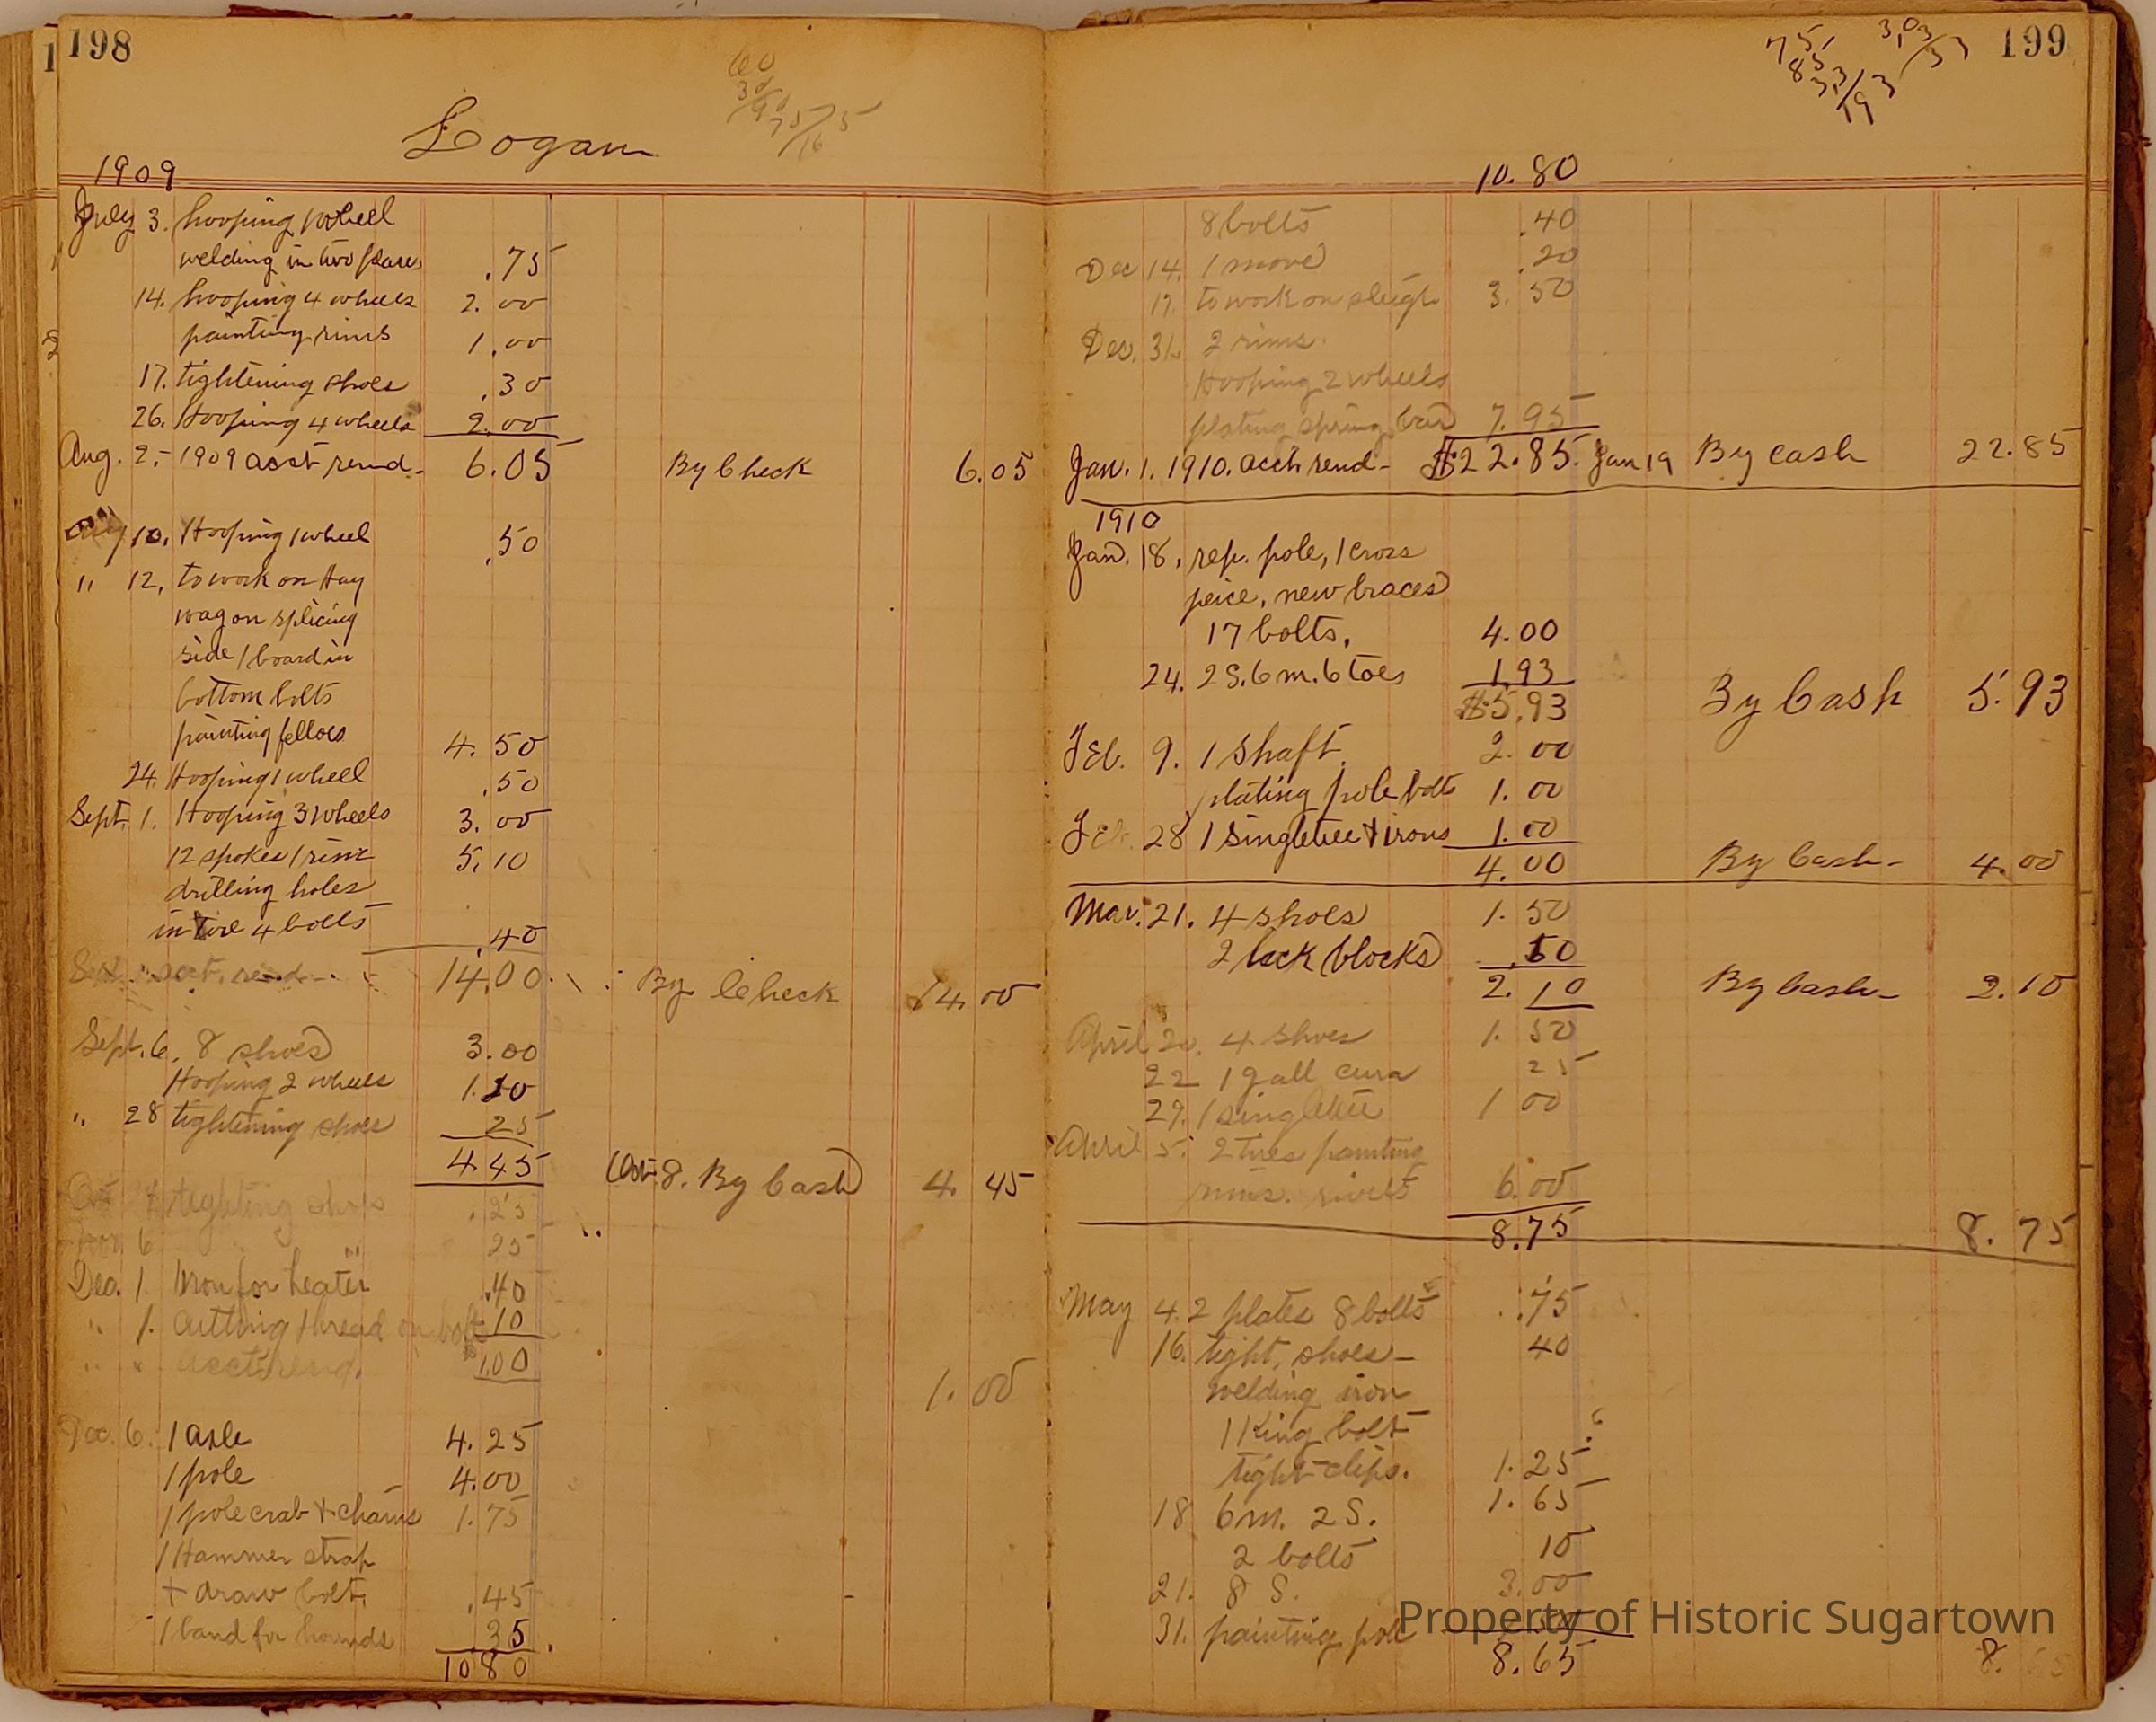 198
Logan
60
30/90
75/75
16
1909
July 3. hooping 1 wheel
welding in two places .75
14. hooping 4 wheels 2.00
painting rims 1.00
17. tightening shoes .30
26. Hooping 4 wheels 2.00
Aug. 2,- 1909 acct rend- 6.05 By Check 6.05
10, Hooping 1 wheel .50
" 12, to work on Hay
wagon splicing
side 1 board in
bottom bolts
painting felloes 4.50
24. Hooping 1 wheel .50
Sept. 1. Hooping 3 wheels 3.00
12 spokes 1 rim 5.10
drilling holes
in tire 4 bolts .40
Sept. acct. rend- 14.00 By Check 14.00
Sept. 6, 8 shoes 3.00
Hooping 2 wheels 1.20
" 28 tightening shoes 25
4.45 Oct 8. By Cash 4.45
Oct 7 tighting shoes .25
Nov 6 " " 25
Dec. 1. Iron for heater .40
" 1. Cutting thread on bolts .10
" " acct rend. 1.00
1.00
Dec. 6. 1 axle 4.25
1 pole 4.00
1 pole crab + chains 1.75
1 Hammer strap
+ draw bolt .45
1 band for hounds .35
10 80
199
10.80
8 bolts .40
Dec 14. 1 move .20
17. to work on sleigh 3.50
Dec. 31. 2 rims.
Hooping 2 wheels
plating spring bar 7.95
Jan. 1. 1910. acct rend- $22.85. Jan 19 By cash 22.85
1910
Jan. 18, rep. pole, 1 cross
peice, new braces
17 bolts, 4.00
24. 2 S. 6 m. 6 toes 1.93
$5.93 By Cash 5.93
Feb. 9. 1 shaft. 2.00
plating pole bolts 1.00
Feb. 28 1 singletree + irons 1.00
4.00 By Cash- 4.00
Mar. 21. 4 shoes 1.50
2 lock blocks
2.10 By Cash- 2.10
April 20. 4 shoes 1.50
22 1 gall cura 25
29. 1 singletree 1 00
April 5. 2 tires painting
rims. rivets 6.00
8.75 8.75
May 4. 2 plates 8 bolts .75
16. tight. shoes- 40
welding iron
1 King bolt
tight clips. 1.25
18 6 m. 2 S. 1.65
2 bolts 10
21. 8 S. 3.00
31. painting pole
8.65 8.65
Property of Historic Sugartown